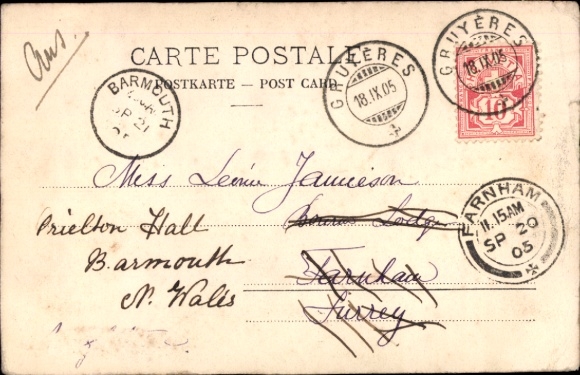 Ans.
CARTE POSTALE
POSTKARTE — POST CARD
GRUYÈRES
18.IX.05
GRUYÈRES
18.IX.05
10
BARMOUTH
SP 21
FARNHAM
11.15AM
SP 20
05
Miss Leonie Jamieson
Lodge
Farnham
Surrey
Hall
Barmouth
N. Wales